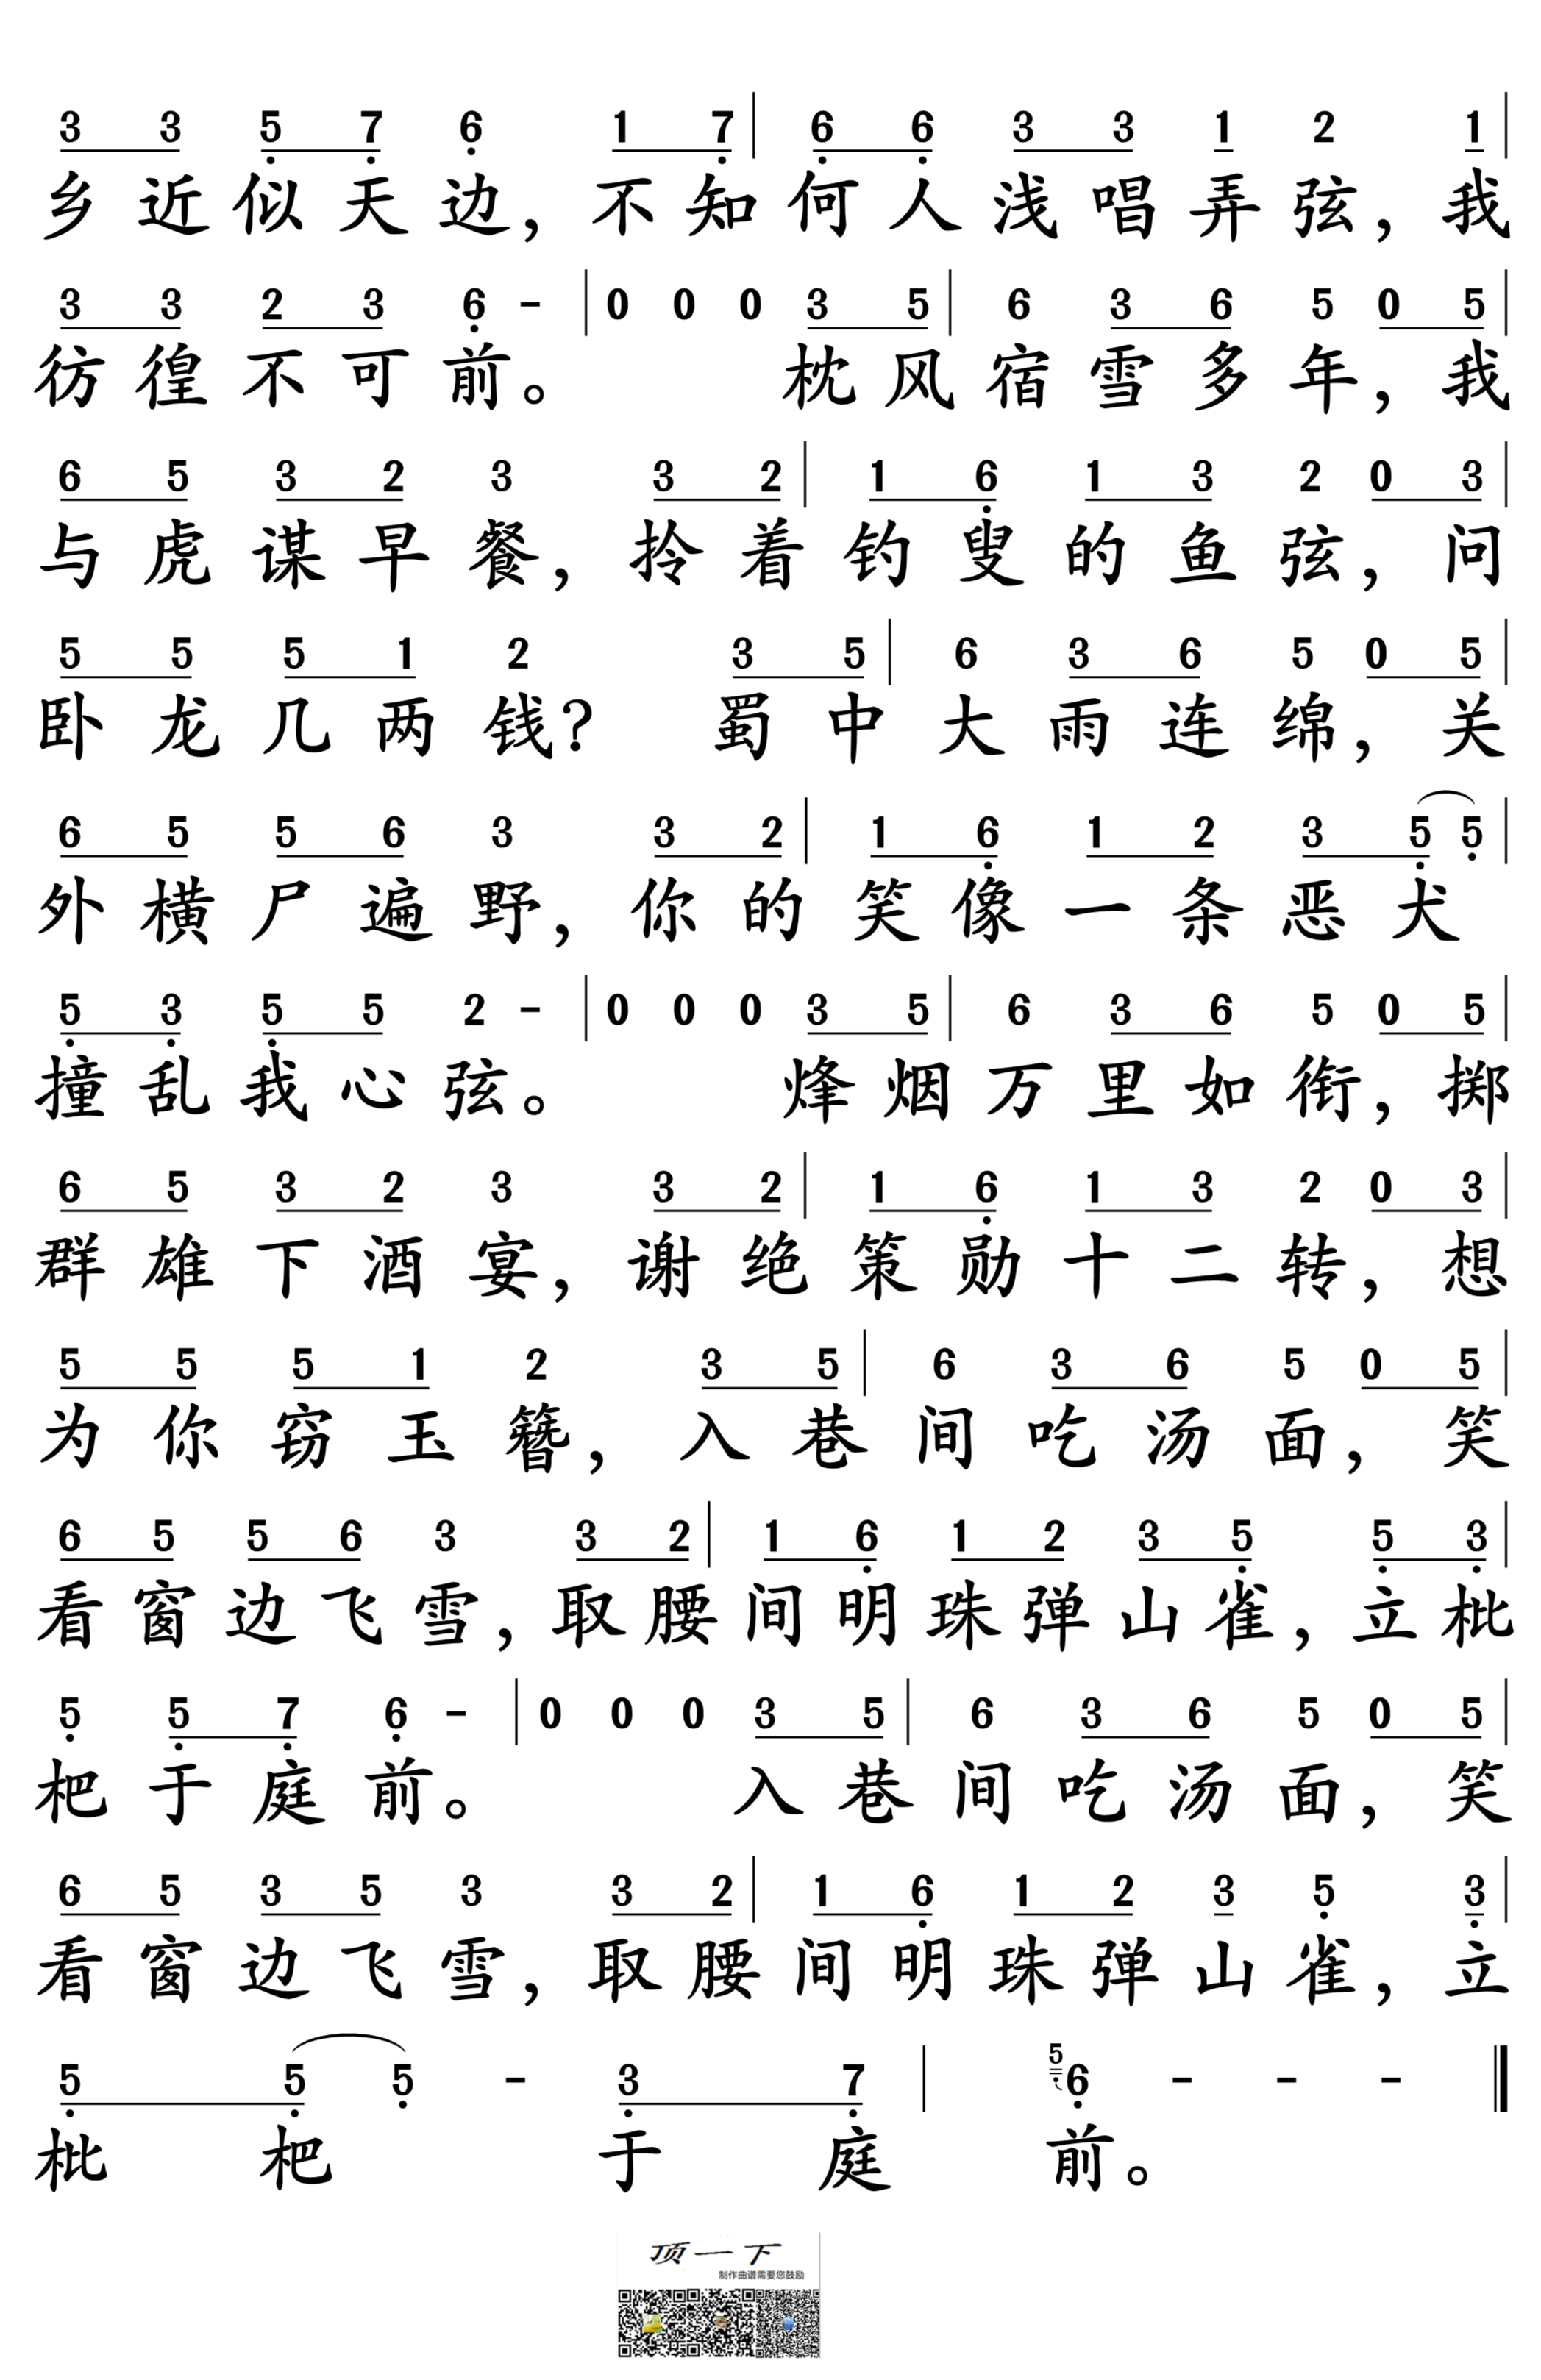 3 3 5 7 6 1 7 | 6 6 3 3 1 2 1 |
乡近似天边，不知何人浅唱弄弦，我
3 3 2 3 6 - | 0 0 0 3 5 | 6 3 6 5 0 5 |
彷徨不可前。 枕风宿雪多年，我
6 5 3 2 3 3 2 | 1 6 1 3 2 0 3 |
与虎谋早餐，拎着钓叟的鱼弦，问
5 5 5 1 2 3 5 | 6 3 6 5 0 5 |
卧龙几两钱？ 蜀中大雨连绵，关
6 5 5 6 3 3 2 | 1 6 1 2 3 5 5 |
外横尸遍野，你的笑像一条恶犬
5 3 5 5 2 - | 0 0 0 3 5 | 6 3 6 5 0 5 |
撞乱我心弦。 烽烟万里如衔，掷
6 5 3 2 3 3 2 | 1 6 1 3 2 0 3 |
群雄下酒宴，谢绝策勋十二转，想
5 5 5 1 2 3 5 | 6 3 6 5 0 5 |
为你窃玉簪，入巷间吃汤面，笑
6 5 5 6 3 3 2 | 1 6 1 2 3 5 5 3 |
看窗边飞雪，取腰间明珠弹山雀，立枇
5 5 7 6 - | 0 0 0 3 5 | 6 3 6 5 0 5 |
杷于庭前。 入巷间吃汤面，笑
6 5 3 5 3 3 2 | 1 6 1 2 3 5 3 |
看窗边飞雪，取腰间明珠弹山雀，立
5 5 5 - 3 7 | 5 6 - - - ‖
枇杷于庭前。
顶一下
制作曲谱需要您鼓励